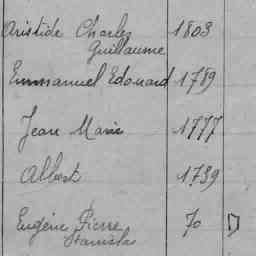 Aristide Charles 1803
Guillaume
Emmanuel Edouard 1789
Jean Marie 1777
Albert 1739
Eugène Pierre 70
Stanislas